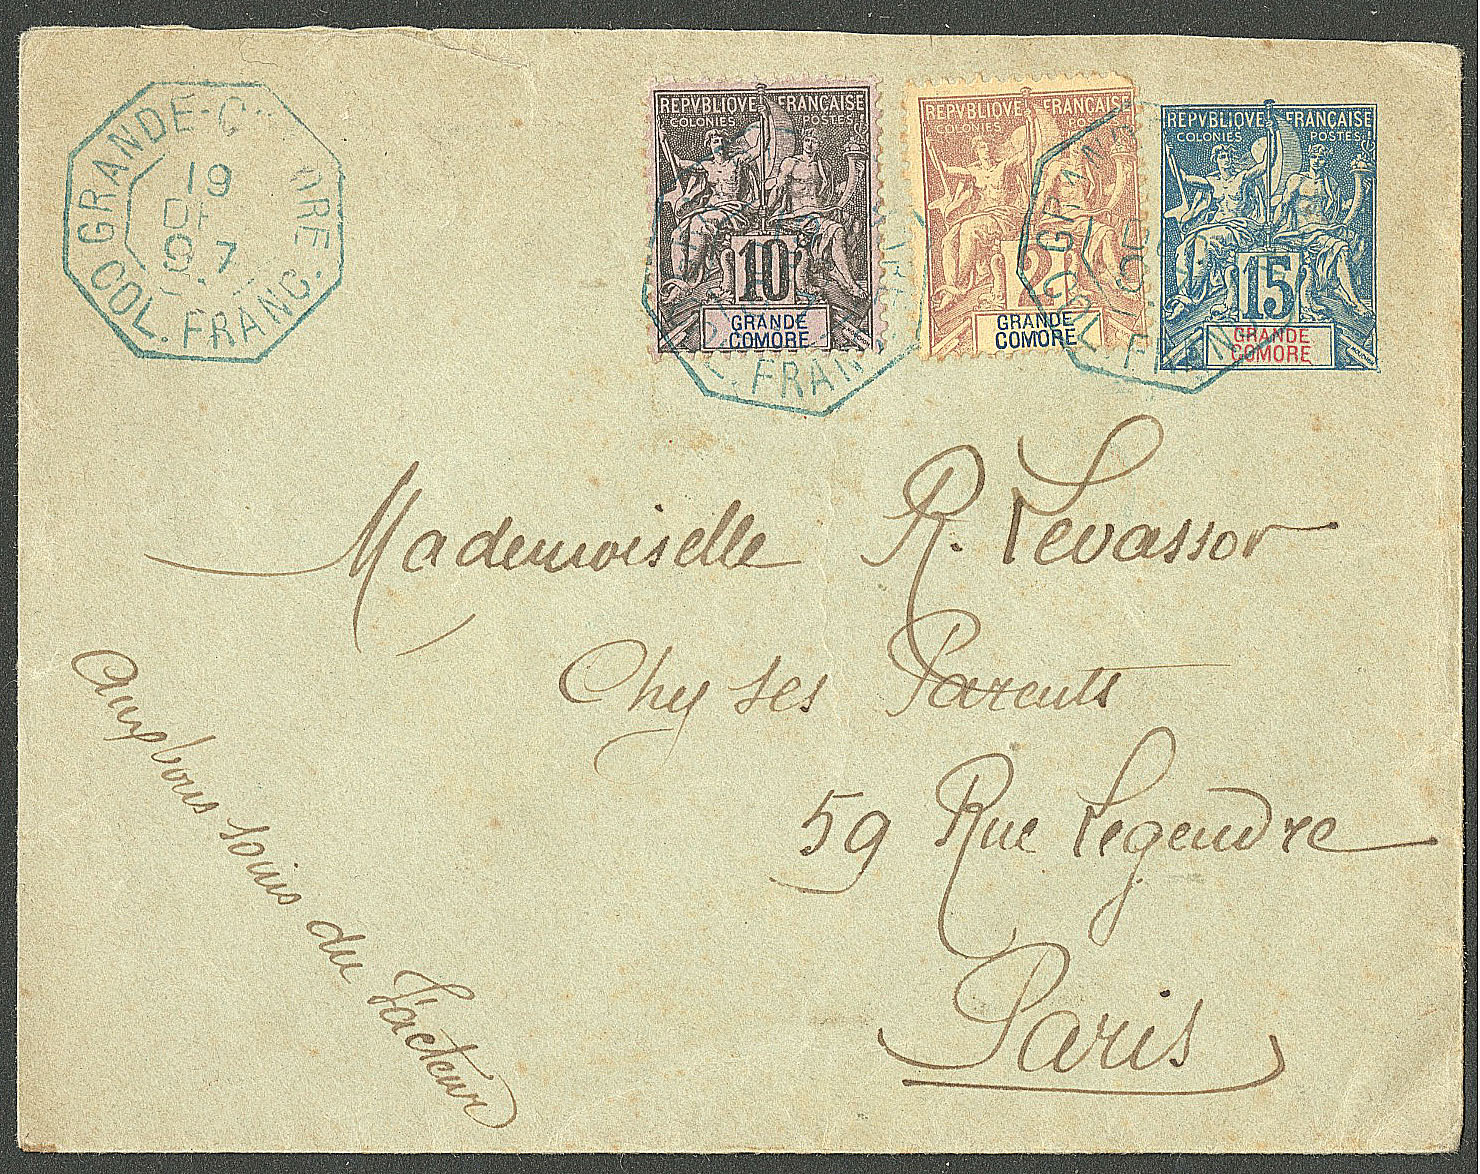 GRANDE-C ORE
19
DE
97
COL. FRANC.
REPVBLIQVE FRANÇAISE
COLONIES POSTES
10
GRANDE
COMORE
REPVBLIQVE FRANÇAISE
COLONIES POS
2
GRANDE
COMORE
REPVBLIQVE FRANÇAISE
COLONIES POSTES
15
GRANDE
COMORE
ORE
. FRAN
GRAND
DE
COL. FRAN
Mademoiselle R. Levassor
Chez ses Parents
59 Rue Legendre
Paris
Aux bons soins du Facteur